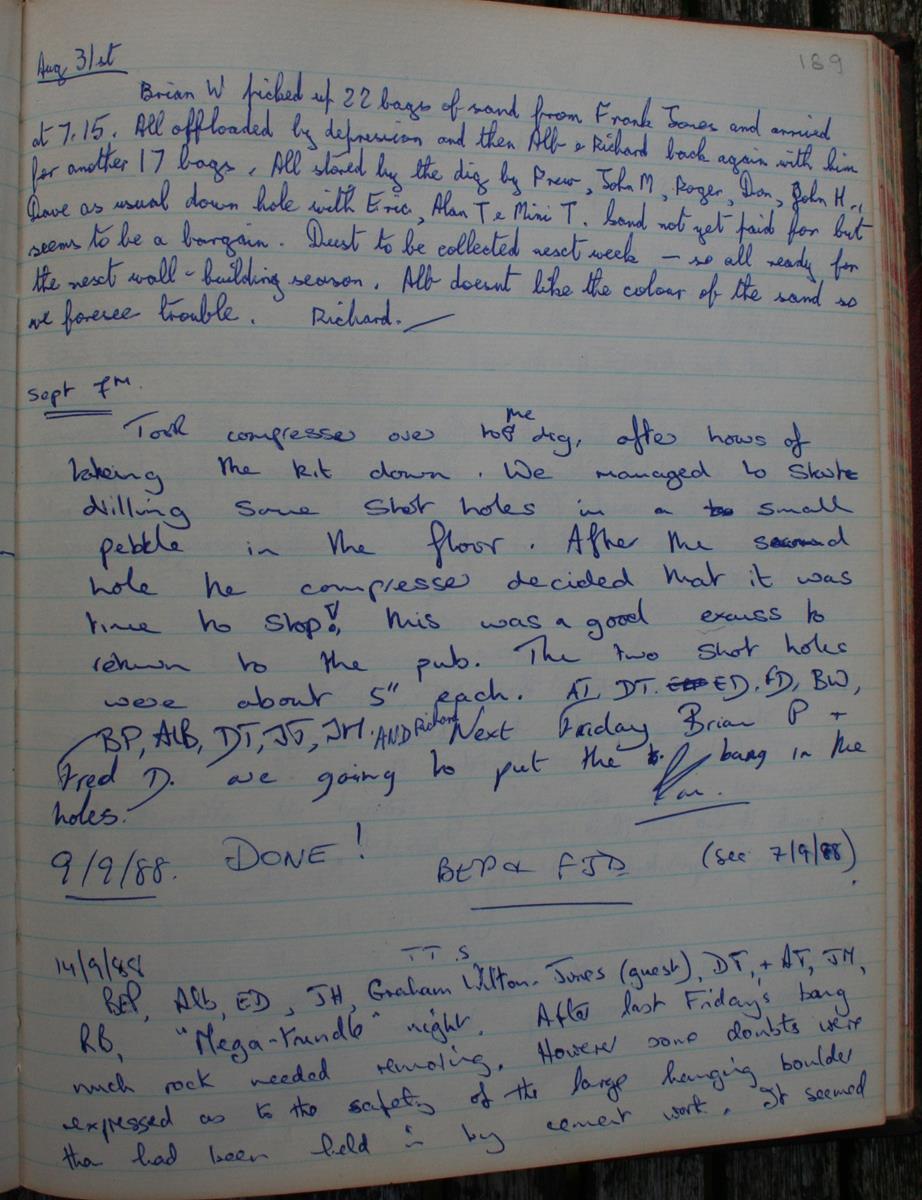 189
Aug 31st
Brian W picked up 22 bags of sand from Frank Jones and arrived
at 7.15. All offloaded by depression and then Alb & Richard back again with him
for another 17 bags. All stored by the dig by Prew, John M, Roger, Dan, John H.,
Dave as usual down hole with Eric, Alan T & Mini T. Sand not yet paid for but
seems to be a bargain. Dust to be collected next week – so all ready for
the next wall-building season. Alb doesnt like the colour of the sand so
we foresee trouble. Richard.
Sept 7th.
Took compresser over to the dig, after hours of
takeing the kit down. We managed to state
drilling some shot holes in a small
pebble in the floor. After the second
hole he compresser decided that it was
time to stop!, this was a good excuss to
return to the pub. The two shot holes
were about 5" each. AT, DT. ED. FD, BW,
BP, ALB, DT, JT, JH. AND Richard Next Friday Brian P +
Fred D. are going to put the bang in the
holes.
9/9/88. DONE! BEP & FJD (see 7/9/88).
14/9/88 TT.S
BEP, Alb, ED, JH, Graham Wilton-Jones (guest), DT, + AT, JM,
RB, "Mega-trundle" night. After last Friday's bang
much rock needed removing. However some doubts were
expressed as to the safety of the large hanging boulder
tha had been held in by cement work. It seemed